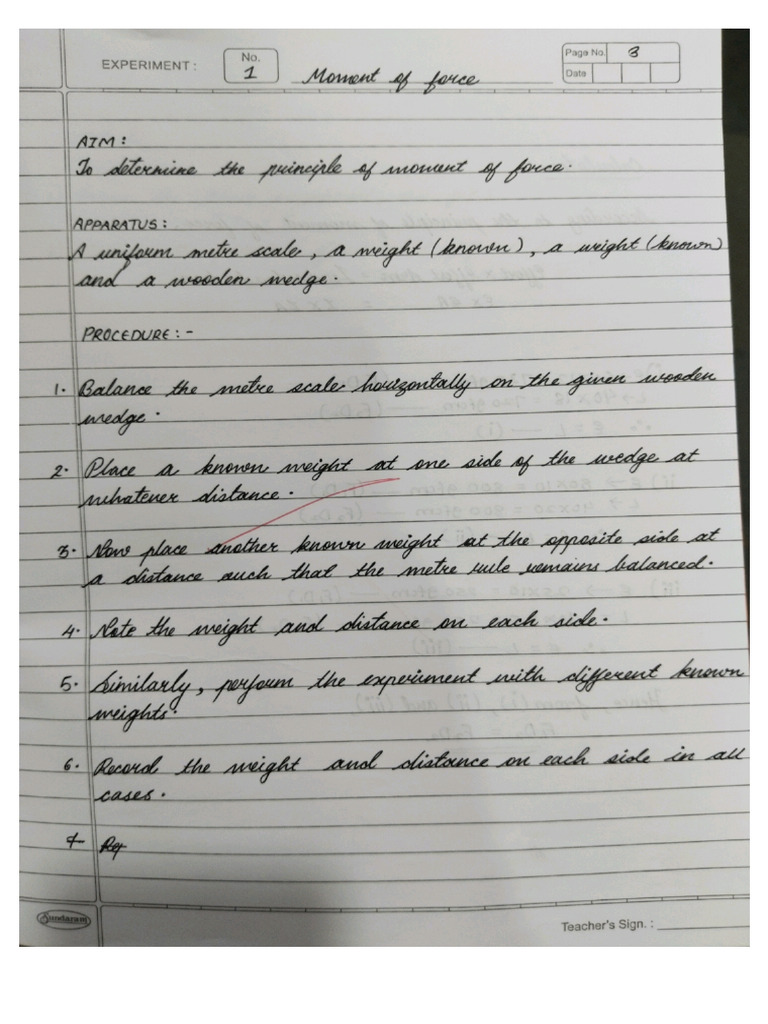 EXPERIMENT :
No.
1
Moment of force
Page No. 3
Date
AIM :
To determine the principle of moment of force.
APPARATUS :
A uniform metre scale, a weight (known), a weight (known)
and a wooden wedge.
PROCEDURE : -
1. Balance the metre scale horizontally on the given wooden
wedge.
2. Place a known weight at one side of the wedge at
whatever distance.
3. Now place another known weight at the opposite side at
a distance such that the metre rule remains balanced.
4. Note the weight and distance on each side.
5. Similarly, perform the experiment with different known
weights.
6. Record the weight and distance on each side in all
cases.
Sundaram
Teacher's Sign. :